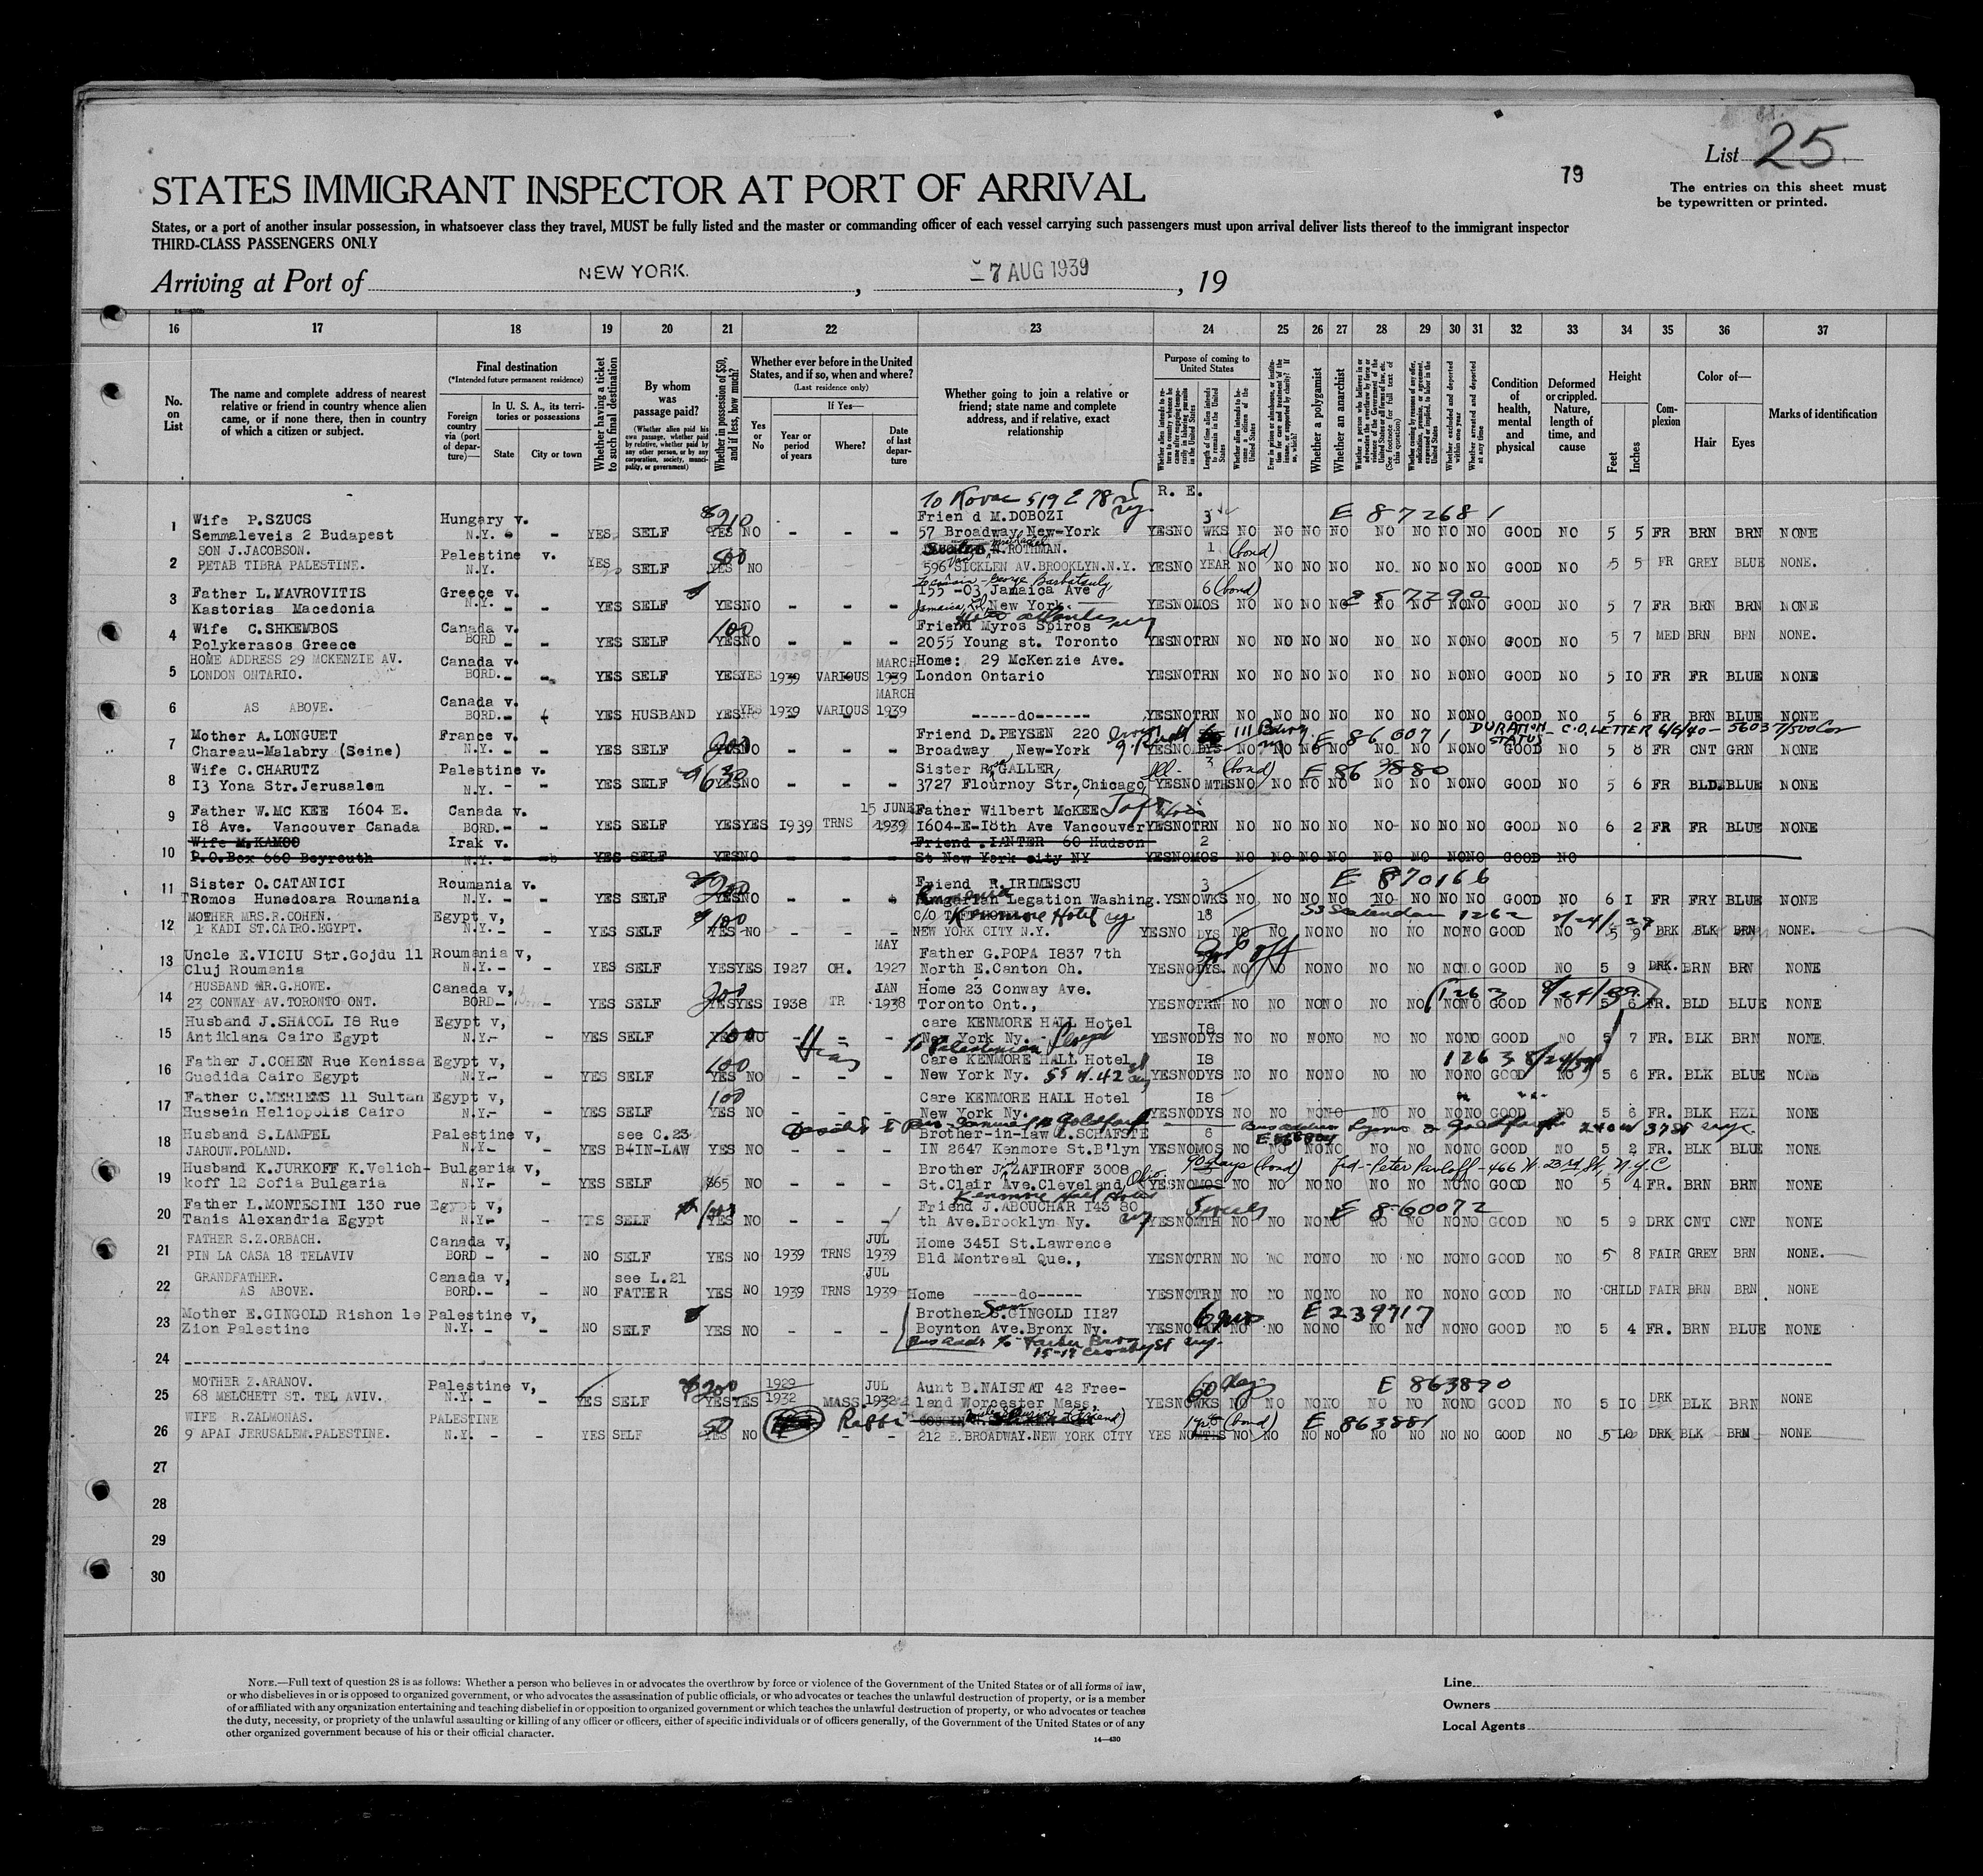 List 25.
79
The entries on this sheet must
be typewritten or printed.
STATES IMMIGRANT INSPECTOR AT PORT OF ARRIVAL
States, or a port of another insular possession, in whatsoever class they travel, MUST be fully listed and the master or commanding officer of each vessel carrying such passengers must upon arrival deliver lists thereof to the immigrant inspector
THIRD-CLASS PASSENGERS ONLY
Arriving at Port of NEW YORK. , 7 AUG 1939 , 19
16 17 18 19 20 21 22 23 24 25 26 27 28 29 30 31 32 33 34 35 36 37
No. on List
The name and complete address of nearest relative or friend in country whence alien came, or if none there, then in country of which a citizen or subject.
Final destination
(*Intended future permanent residence)
Foreign country via (port of departure)—
In U. S. A., its territories or possessions
State
City or town
Whether having a ticket to such final destination
By whom was passage paid?
(Whether alien paid his own passage, whether paid by relative, whether paid by any other person, or by any corporation, society, municipality, or government)
Whether in possession of $50, and if less, how much?
Whether ever before in the United States, and if so, when and where?
(Last residence only)
Yes or No
If Yes—
Year or period of years
Where?
Date of last departure
Whether going to join a relative or friend; state name and complete address, and if relative, exact relationship
Purpose of coming to United States
Length of time alien intends to remain in the United States
Whether alien intends to become a citizen of the United States
Whether a polygamist
Whether an anarchist
Condition of health, mental and physical
Deformed or crippled. Nature, length of time, and cause
Height
Feet
Inches
Complexion
Color of—
Hair
Eyes
Marks of identification
To Kovac 519 E 78 St R. E.
1 Wife P.SZUCS Hungary v. $210 Frien d M.DOBOZI 3 E 872681
Semmaleveis 2 Budapest N.Y. - - YES SELF YES NO - - - 57 Broadway New-York YESNO WKS NO NO NO NO NO NO NO NO GOOD NO 5 5 FR BRN BRN NONE
2 SON J.JACOBSON. Palestine v. 500 N.ROTHMAN. 1 (bond)
PETAB TIBRA PALESTINE. N.Y. YES SELF YES NO 596 SICKLEN AV.BROOKLYN.N.Y. YESNO YEAR NO NO NO NO NO NO NO NO GOOD NO 5 5 FR GREY BLUE NONE.
3 Father L.MAVROVITIS Greece v. 155-03 Jamaica Ave 6 (bond)
Kastorias Macedonia N.Y. YES SELF YESNO - - - Jamaica, L.I. New York. YESNOMOS NO NO NO NO NONO GOOD NO 5 7 FR BRN BRN NONE
4 Wife C.SHKEMBOS Canada v. 100 Friend Myros Spiros
Polykerasos Greece BORD - YES SELF YESNO - - - 2055 Young st. Toronto YESNOTRN NO NO NO NO NO NO NONO GOOD NO 5 7 MED BRN BRN NONE.
5 HOME ADDRESS 29 MCKENZIE AV. Canada v. MARCH Home: 29 McKenzie Ave.
LONDON ONTARIO. BORD. - - YES SELF YESYES 1939 VARIOUS 1939 London Ontario YESNOTRN NO NO NO NO NO NO NONO GOOD NO 5 10 FR FR BLUE NONE
6 AS ABOVE. Canada v. MARCH
BORD. - YES HUSBAND YES YES 1939 VARIOUS 1939 -----do------ YESNOTRN NO NO NO NO NO NO NONO GOOD NO 5 6 FR BRN BLUE NONE
7 Mother A.LONGUET France v. 200 Friend D.PEYSEN 220 E 860071 DURATION STATUS - C.O. LETTER 6/6/40 - 56037/500
Chareau-Malabry (Seine) N.Y. - - YES SELF YESNO - - - Broadway New-York YESNO DYS NO NO NO NO NO NO NONO GOOD NO 5 8 FR CNT GRN NONE
8 Wife C.CHARUTZ Palestine v. Sister R.GALLER, Ill. 3 (bond) E 863880
13 Yona Str.Jerusalem N.Y. - YES SELF YESNO - - - 3727 Flournoy Str.Chicago YESNO MTHSNO NO NO NO NO NO NONO GOOD NO 5 6 FR BLD. BLUE NONE
9 Father W.MC KEE 1604 E. Canada v. 15 JUNE Father Wilbert McKEE
18 Ave. Vancouver Canada BORD. - - YES SELF YESYES 1939 TRNS 1939 1604-E-18th Ave Vancouver YESNOTRN NO NO NO NO NO NO NO NO GOOD NO 6 2 FR FR BLUE NONE
10 Wife M.KAMOO Irak v. Friend .IANTER 60 Hudson 2
P.O.Box 660 Beyrouth N.Y. YES SELF YESNO St New York city NY YESNOMOS NO NO NO NO NO NO NONO GOOD NO
11 Sister O.CATANICI Roumania v. $200 Friend R.IRIMESCU 3 E 870166
Romos Hunedoara Roumania N.Y. - - YES SELF YESNO - - - Legation Washing. YSNOWKS NO NO NO NO NO NO NONO GOOD NO 6 1 FR FRY BLUE NONE
12 MOTHER MRS.R.COHEN. Egypt v, $100 C/O Kenmore Hotel 18 SS Statendam 1262 8/24/39
1 KADI ST.CAIRO.EGYPT. N.Y. - - YES SELF YES NO - - - NEW YORK CITY N.Y. YESNO DYS NO NO NONO NO NO NONO GOOD NO 5 9 DRK BLK BRN NONE.
13 Uncle E.VICIU Str.Gojdu 11 Roumania v, MAY Father G.POPA 1837 7th
Cluj Roumania N.Y. - - YES SELF YESYES 1927 OH. 1927 North E.Canton Oh. YESNODYS. NO NO NONO NO NO NONO GOOD NO 5 9 DRK. BRN BRN NONE
14 HUSBAND MR.G.HOWE. Canada v, 200 JAN Home 23 Conway Ave. 1263 8/24/39
23 CONWAY AV.TORONTO ONT. BORD- - YES SELF YESYES 1938 TR 1938 Toronto Ont., YESNOTRN NO NO NONO NO NO NONO GOOD NO 5 6 FR. BLD BLUE NONE
15 Husband J.SHACOL 18 Rue Egypt v, care KENMORE HALL Hotel 18
Antiklana Cairo Egypt N.Y.- - YES SELF 100 - - - New York Ny. YESNODYS NO NO NONO NO NO NONO GOOD NO 5 7 FR. BLK BRN NONE
16 Father J.COHEN Rue Kenissa Egypt v, 100 Hias Care KENMORE HALL Hotel 18 1263 8/24/39
Guedida Cairo Egypt N.Y.- - YES SELF YES NO - - - New York Ny. 55 W. 42 St YESNODYS NO NO NONO NO NO NONO GOOD NO 5 6 FR. BLK BLUE NONE
17 Father C.MERIEMS 11 Sultan Egypt v, 100 Care KENMORE HALL Hotel 18
Hussein Heliopolis Cairo N.Y.- - YES SELF YES NO - - - New York Ny. YESNODYS NO NO NONO NO NO NONO GOOD NO 5 6 FR. BLK HZL NONE
18 Husband S.LAMPEL Palestine v, see C.23 Brother-in-law L.SCHAFSTE 6
JAROUW.POLAND. N.Y. - YES B-IN-LAW YES NO - - - IN 2647 Kenmore St.B'lyn YESNOMOS NO NO NONO NO NO NONO GOOD NO 5 2 FR. BLK BLUE NONE
19 Husband K.JURKOFF K.Velich- Bulgaria v, Brother J.ZAFIROFF 3008 90 days (bond) Peter Pavloff - 466 W. 23rd St, N.Y.C
koff 12 Sofia Bulgaria N.Y.- - YES SELF $65 NO - - - St.Clair Ave.Cleveland Ohio YESNOMOS NO NO NONO NO NO NONO GOOD NO 5 4 FR. BRN BRN NONE
Kenmore Hall Hotel
20 Father L.MONTESINI 130 rue Egypt v, Friend J.ABOUCHAR 143 80 E 860072
Tanis Alexandria Egypt N.Y. - YES SELF YES NO - - - th Ave.Brooklyn Ny. YESNOMTH NO NO NONO NO NO NONO GOOD NO 5 9 DRK CNT CNT NONE
21 FATHER S.Z.ORBACH. Canada v, JUL Home 3451 St.Lawrence
PIN LA CASA 18 TELAVIV BORD - - NO SELF YES NO 1939 TRNS 1939 Bld Montreal Que., YESNOTRN NO NO NONO NO NO NONO GOOD NO 5 8 FAIR GREY BRN NONE.
22 GRANDFATHER. Canada v, see L.21 JUL
AS ABOVE. BORD.- - NO FATHER YES NO 1939 TRNS 1939 Home -----do----- YESNOTRN NO NO NONO NO NO NONO GOOD NO CHILD FAIR BRN BRN NONE
23 Mother E.GINGOLD Rishon le Palestine v, Brother S.GINGOLD 1127 E 239717
Zion Palestine N.Y. - - NO SELF YES NO - - - Boynton Ave.Bronx Ny. YESNO NO NO NONO NO NO NONO GOOD NO 5 4 FR. BRN BLUE NONE
24
25 MOTHER Z.ARANOV. Palestine v, $200 1929 JUL Aunt B.NAISTAT 42 Free- 60 days E 863890
68 MELCHETT ST. TEL AVIV. N.Y. - - YES SELF YESYES 1932 MASS. 1932 land Worcester Mass, YESNOWKS NO NO NONO NO NO NONO GOOD NO 5 10 DRK BLK BRN NONE
26 WIFE R.ZALMONAS. PALESTINE 50 Rabbi (bond) E 863881
9 APAI JERUSALEM.PALESTINE. N.Y. - - YES SELF YES NO - - 212 E.BROADWAY.NEW YORK CITY YES NO MTHS NO NO NO NO NO NO NO NO GOOD NO 5 10 DRK BLK BRN NONE
27
28
29
30
NOTE.—Full text of question 28 is as follows: Whether a person who believes in or advocates the overthrow by force or violence of the Government of the United States or of all forms of law,
or who disbelieves in or is opposed to organized government, or who advocates the assassination of public officials, or who advocates or teaches the unlawful destruction of property, or is a member
of or affiliated with any organization entertaining and teaching disbelief in or opposition to organized government or which teaches the unlawful destruction of property, or who advocates or teaches
the duty, necessity, or propriety of the unlawful assaulting or killing of any officer or officers, either of specific individuals or of officers generally, of the Government of the United States or of any
other organized government because of his or their official character.
14—430
Line
Owners
Local Agents